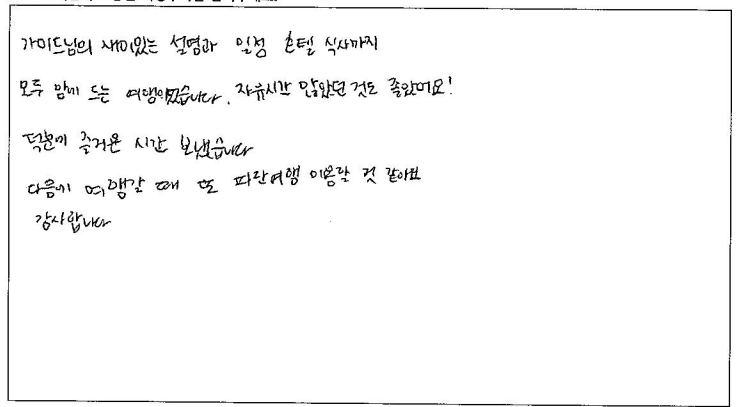 가이드님의 재미있는 설명과 일정 호텔 식사까지
모두 맘에 드는 여행이었습니다. 자유시간 많았던 것도 좋았어요!
덕분에 즐거운 시간 보냈습니다
다음에 여행갈 때 또 파란여행 이용할 것 같아요
감사합니다